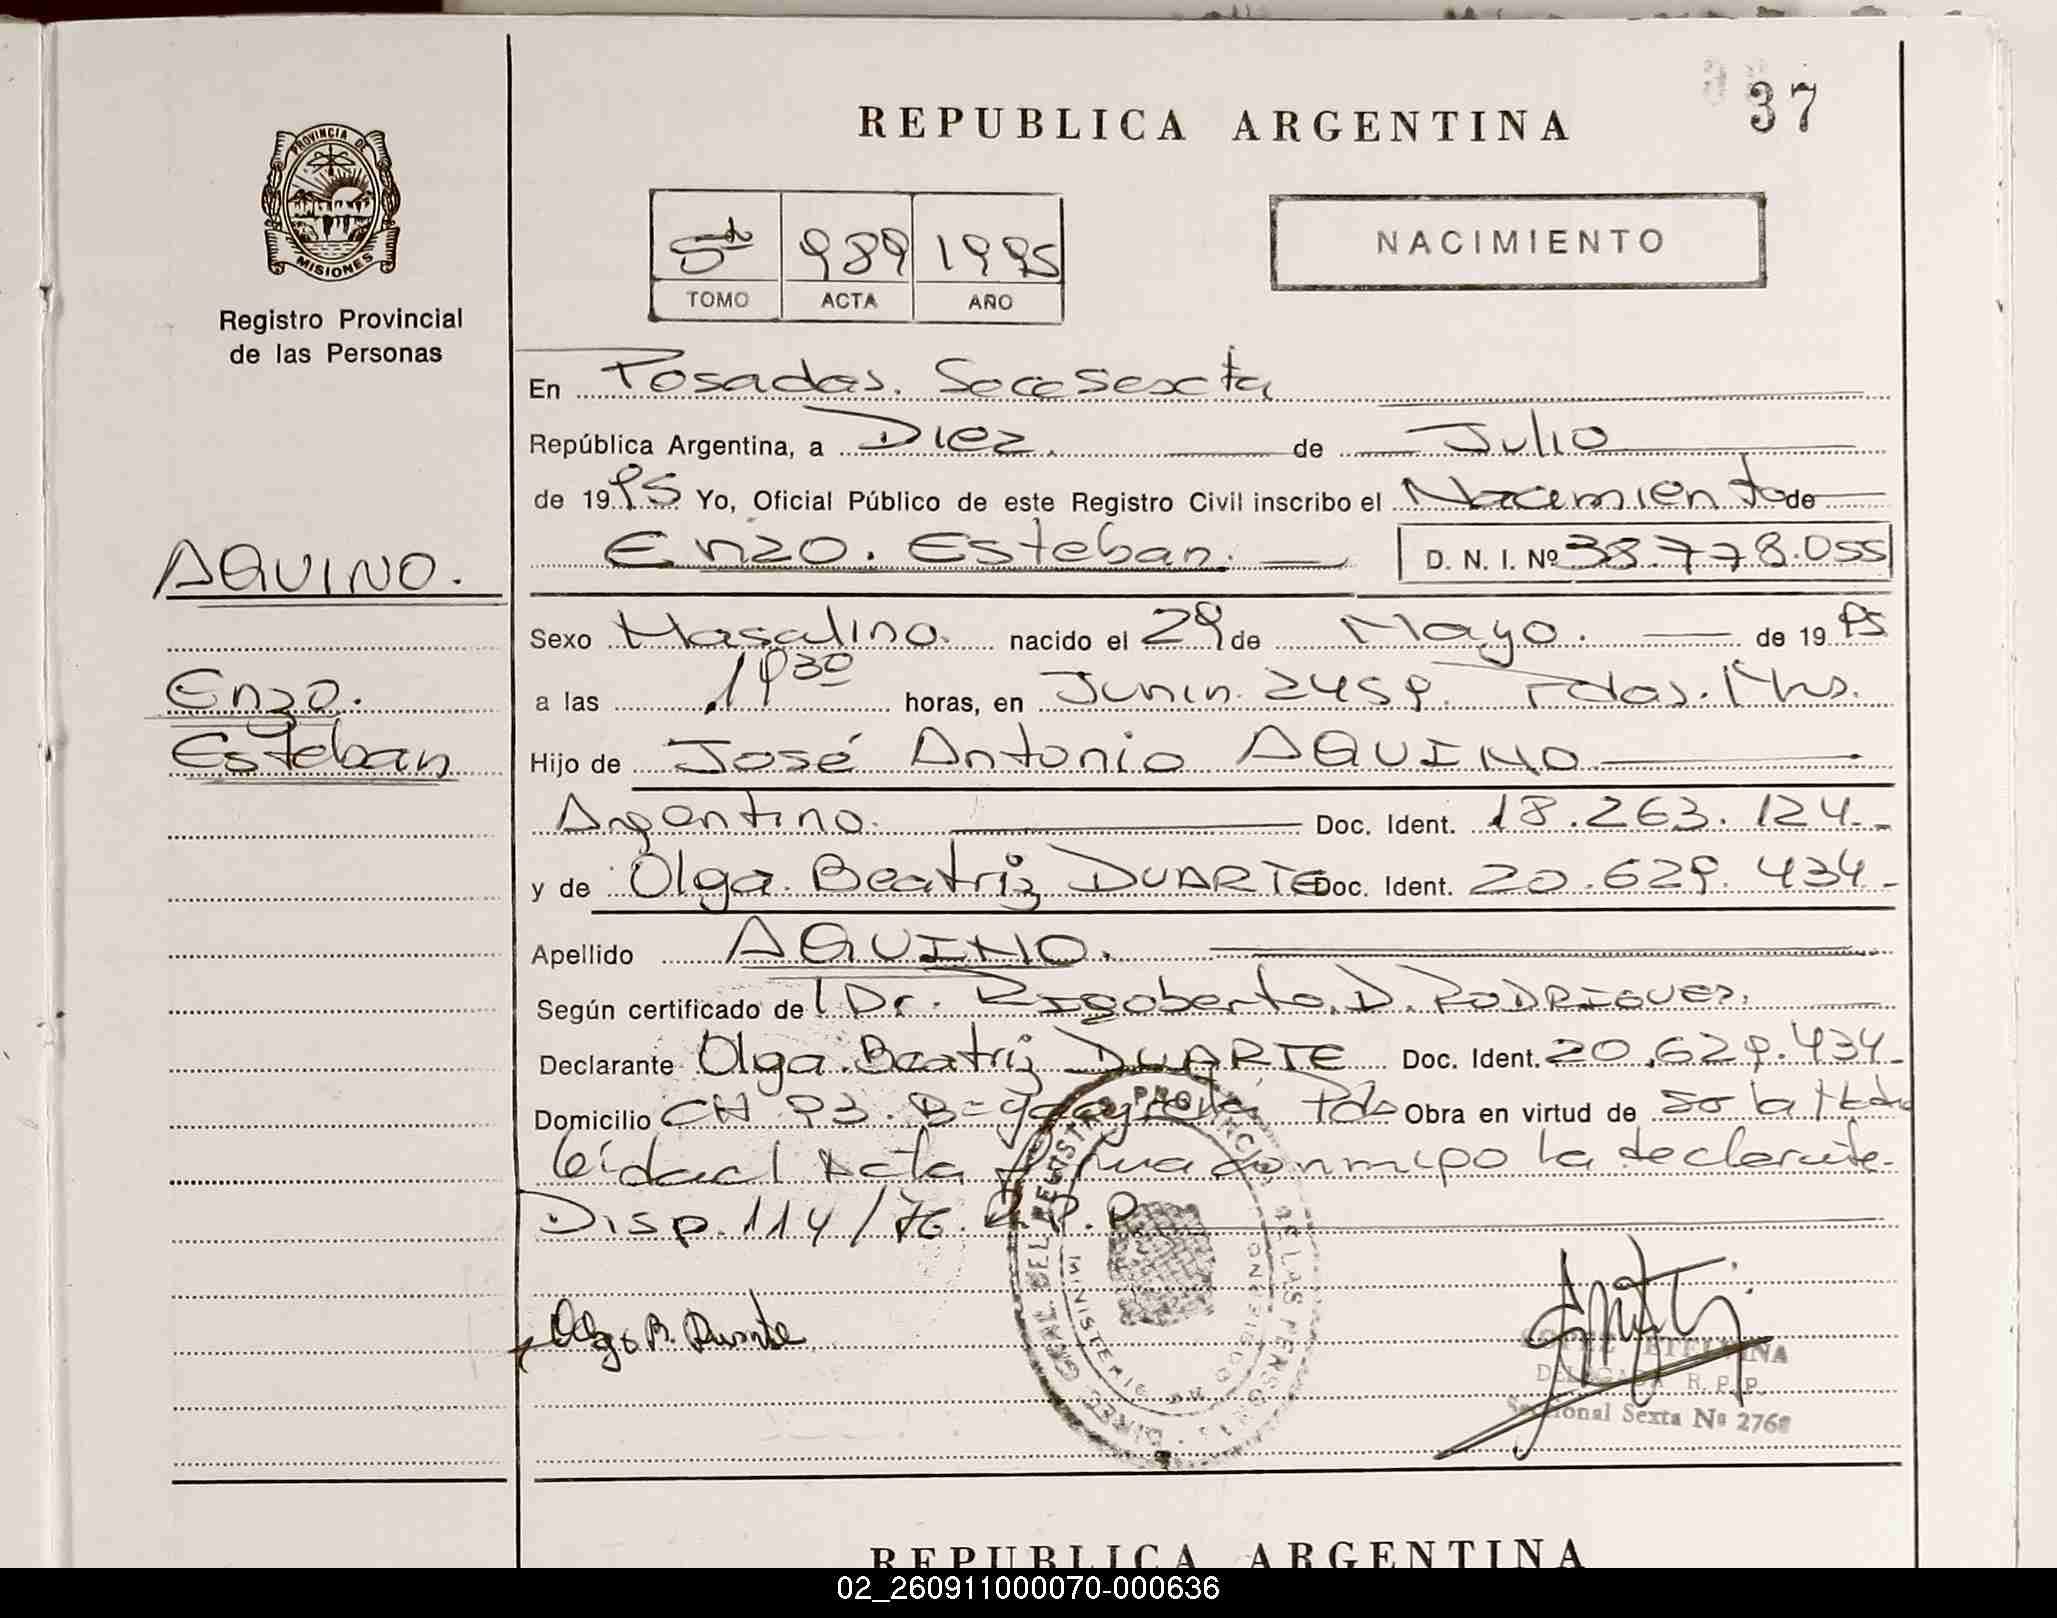 REPUBLICA ARGENTINA
37
PROVINCIA DE
MISIONES
Registro Provincial
de las Personas
5to 989 1995
TOMO ACTA AÑO
NACIMIENTO
En Posadas. Secc Sexta
República Argentina, a Diez de Julio
de 1995 Yo, Oficial Público de este Registro Civil inscribo el Nacimiento de
Enzo. Esteban. D. N. I. Nº 38.778.055
AQUINO.
Enzo.
Esteban
Sexo Masculino. nacido el 29 de Mayo. de 1995
a las 1930 horas, en Junin. 2459. Pdas. Mns.
Hijo de José Antonio AQUINO
Argentino. Doc. Ident. 18.263.124
y de Olga Beatriz DUARTE Doc. Ident. 20.629.434
Apellido AQUINO.
Según certificado de Dr. Rigoberto. D. RODRIGUEZ.
Declarante Olga Beatriz DUARTE Doc. Ident. 20.629.434
Domicilio CH 93. Pds Obra en virtud de
leída el Acta firma conmigo la declarante
Disp. 114/76. R.P.P.
Olga B. Duarte
DIREC. GRAL. DEL REGISTRO PROVINCIAL DE LAS PERSONAS
MINISTERIO DE GOBIERNO
LOPEZ ETELVINA
DELEGADA R. P. P.
Seccional Sexta Nº 276
REPUBLICA ARGENTINA
02_260911000070-000636